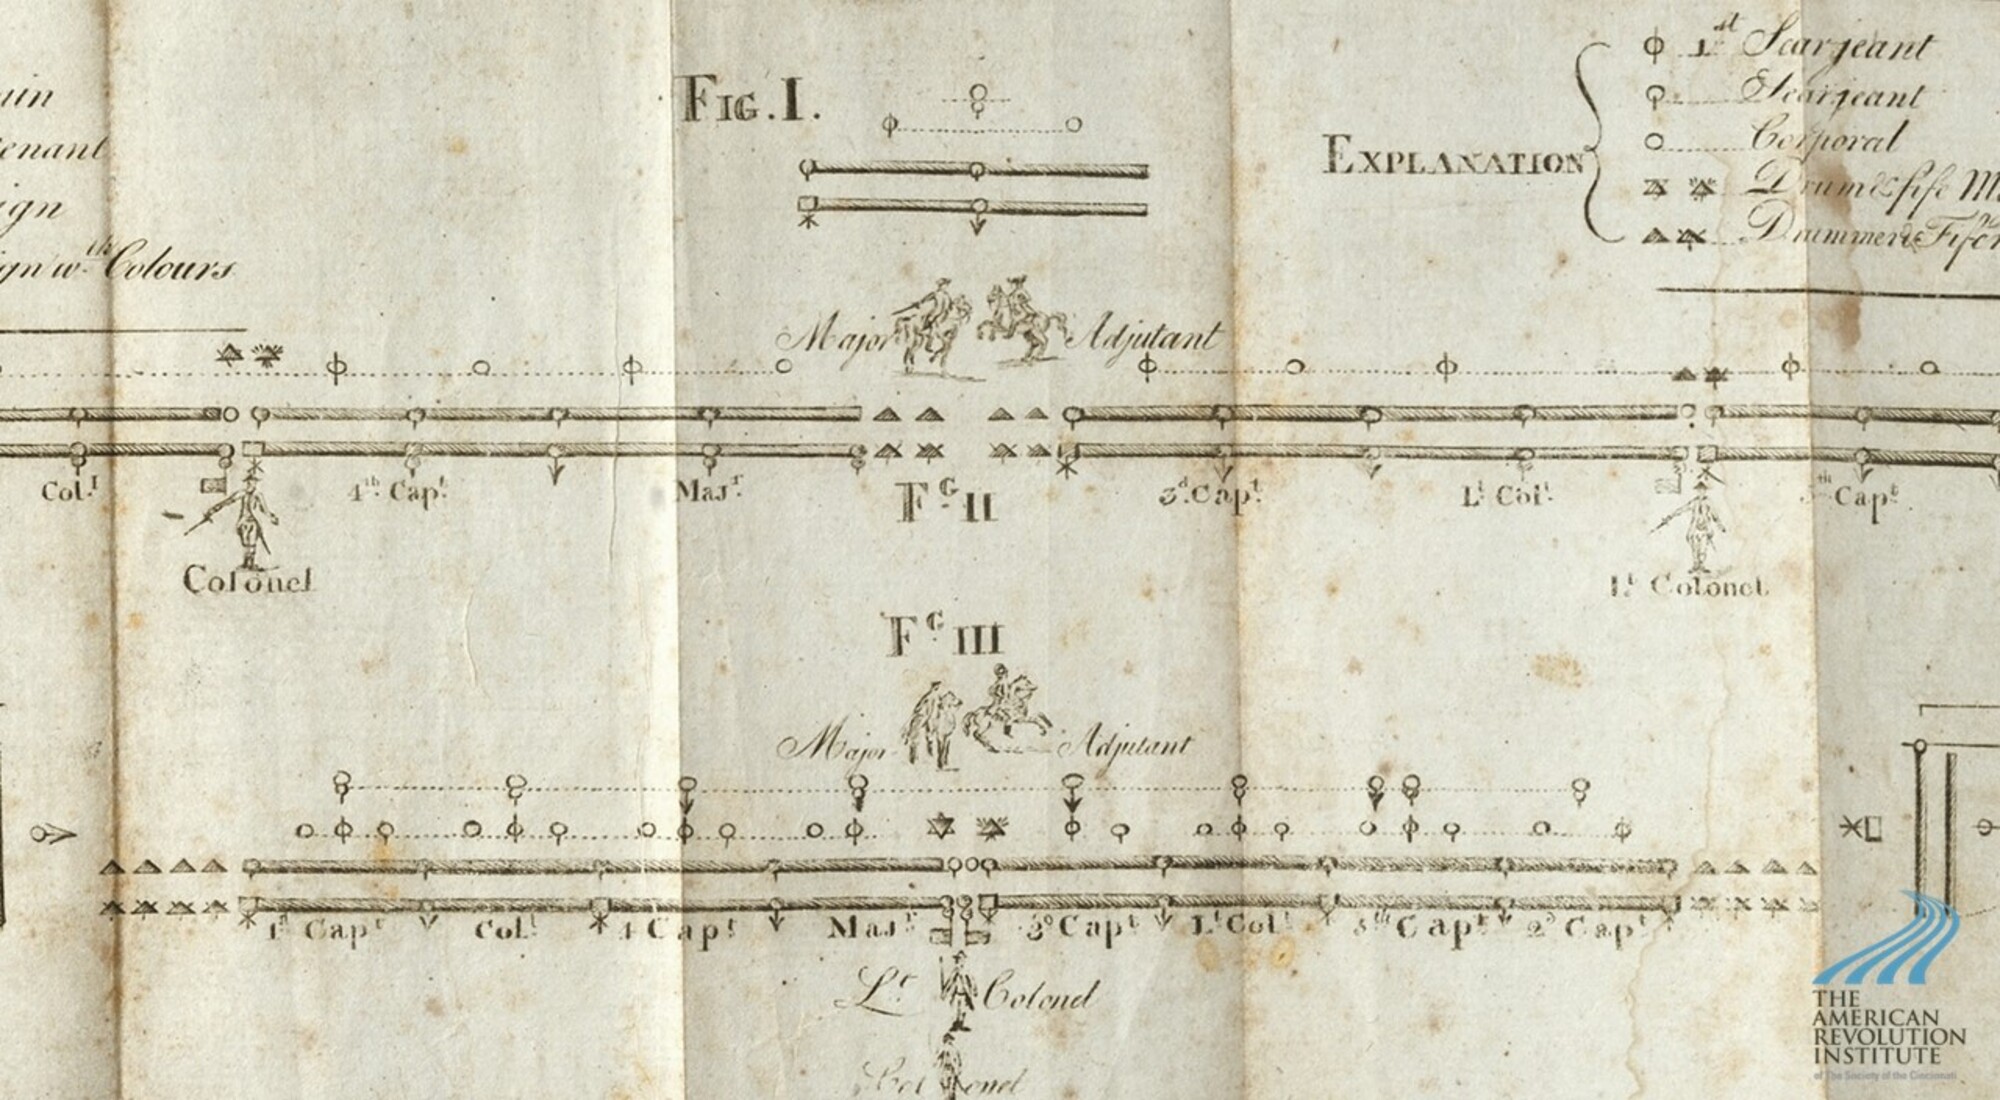 Fig. I.
Explanation
1st Searjeant
Searjeant
Corporal
Drum & fife
Drummer &
Colours
Major
Adjutant
Col.l
4th Capt.
Majr.
Fg. II
3d. Capt.
Lt. Col.l
Capt.
Colonel
Lt. Colonel
Fg. III
Major
Adjutant
1st Capt
Col.l
4 Capt.
Majr.
3d Capt
Lt Col.l
5th Capt
2d Capt
Lt. Colonel
Colonel
THE
AMERICAN
REVOLUTION
INSTITUTE
of The Society of the Cincinnati